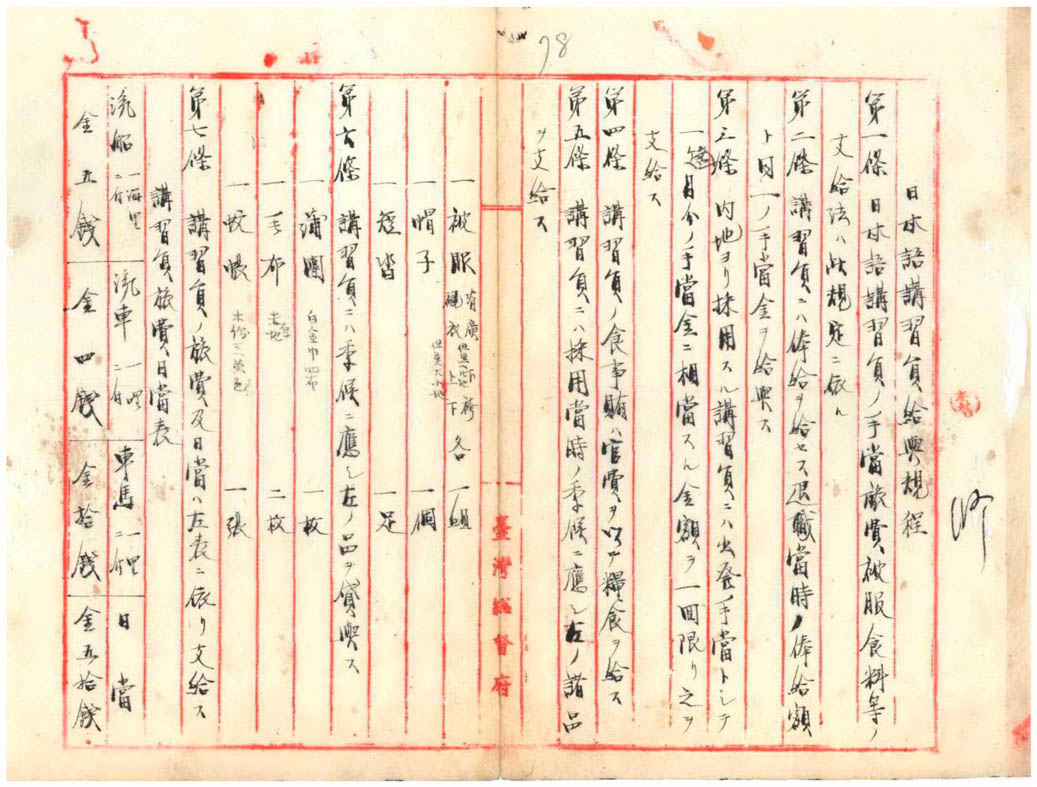 78
日本語講習員給與規程
第一條 日本語講習員ノ手當旅費被服食料等ノ
支給法ハ此規定ニ依ル
第二條 講習員ニハ俸給ヲ給セス退職當時ノ俸給額
ト同一ノ手當金ヲ給與ス
第三條 内地ヨリ採用スル講習員ニハ出發手當トシテ
一箇月分ノ手當金ニ相當スル金額ヲ一回限リ之ヲ
支給ス
第四條 講習員ノ食事賄ハ官費ヲ以テ糧食ヲ給ス
第五條 講習員ニハ採用當時ノ季候ニ應シ左ノ諸品
ヲ支給ス
臺灣總督府
一 被服 各 一組
一 帽子 一個
一 短沓 一足
第六條 講習員ニハ季候ニ應シ左ノ品ヲ貸與ス
一 蒲團 白金巾四布 一枚
一 毛布 二枚
一 蚊帳 一張
第七條 講習員ノ旅費及日當ハ左表ニ依リ支給ス
講習員旅費日當表
汽船 一海里ニ付 汽車 一哩ニ付 車馬 一里ニ付 日當
金五錢 金四錢 金拾錢 金五拾錢